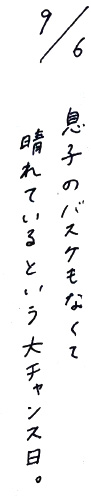 9/6
息子のバスケもなくて
晴れているという大チャンス日。